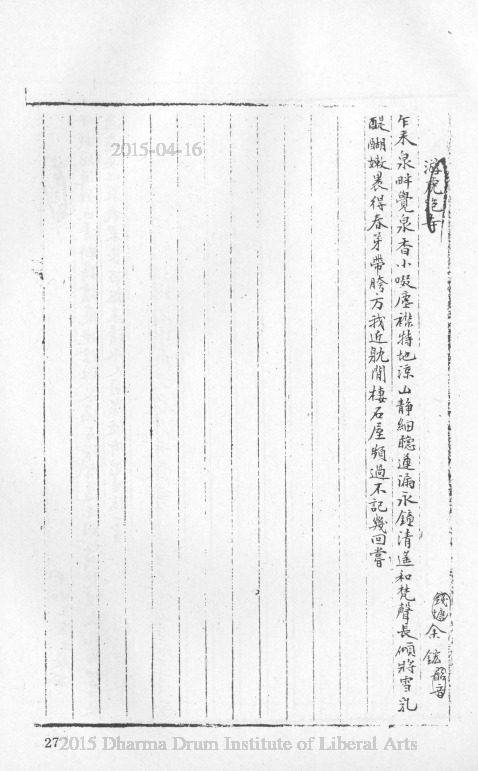 游虎跑寺
錢塘 余 鋐 韶音
乍來泉畔覺泉香小啜塵襟特地涼山靜細聽蓮漏永鐘清遙和梵聲長傾將雪乳
醍醐嫩裹得春芽帶胯方我近躭閒棲石屋頻過不記幾回嘗
2015-04-16
27
2015 Dharma Drum Institute of Liberal Arts